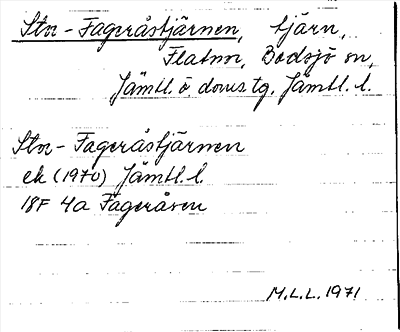 Stor-Fageråstjärnen, tjärn,
Flatnor, Bodsjö sn,
Jämtl. ö. doms tg. Jämtl. l.
Stor-Fageråstjärnen
ek (1970) Jämtl. l.
18F 4a Fageråsen
M.L.L. 1971